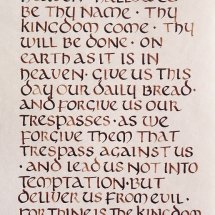 heaven hallowed
be thy name · thy
kingdom come · thy
will be done · on
earth as it is in
heaven · give us this
day our daily bread ·
and forgive us our
trespasses · as we
forgive them that
trespass against us
· and lead us not into
temptation · but
deliver us from evil ·
for thine is the kingdom